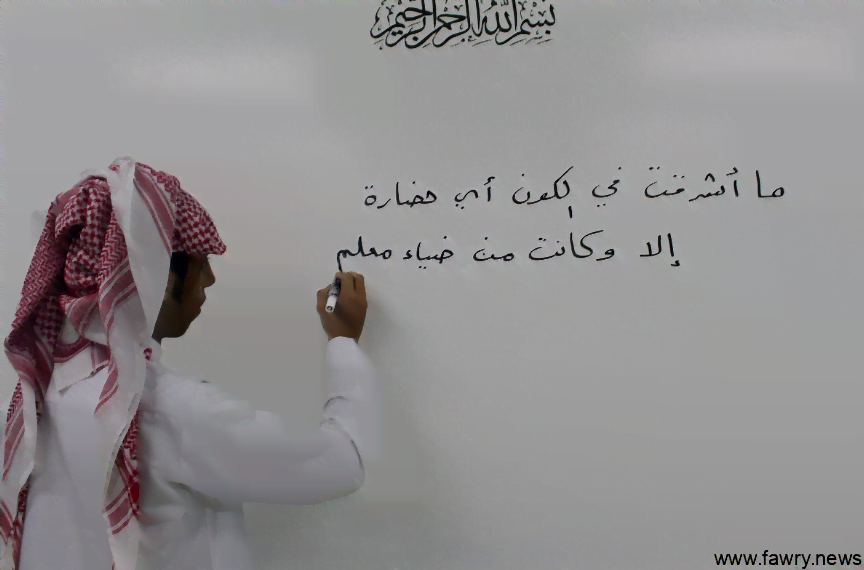 بسم الله الرحمن الرحيم
ما أشرقت في الكون أي حضارة
إلا وكانت من ضياء معلم
www.fawry.news